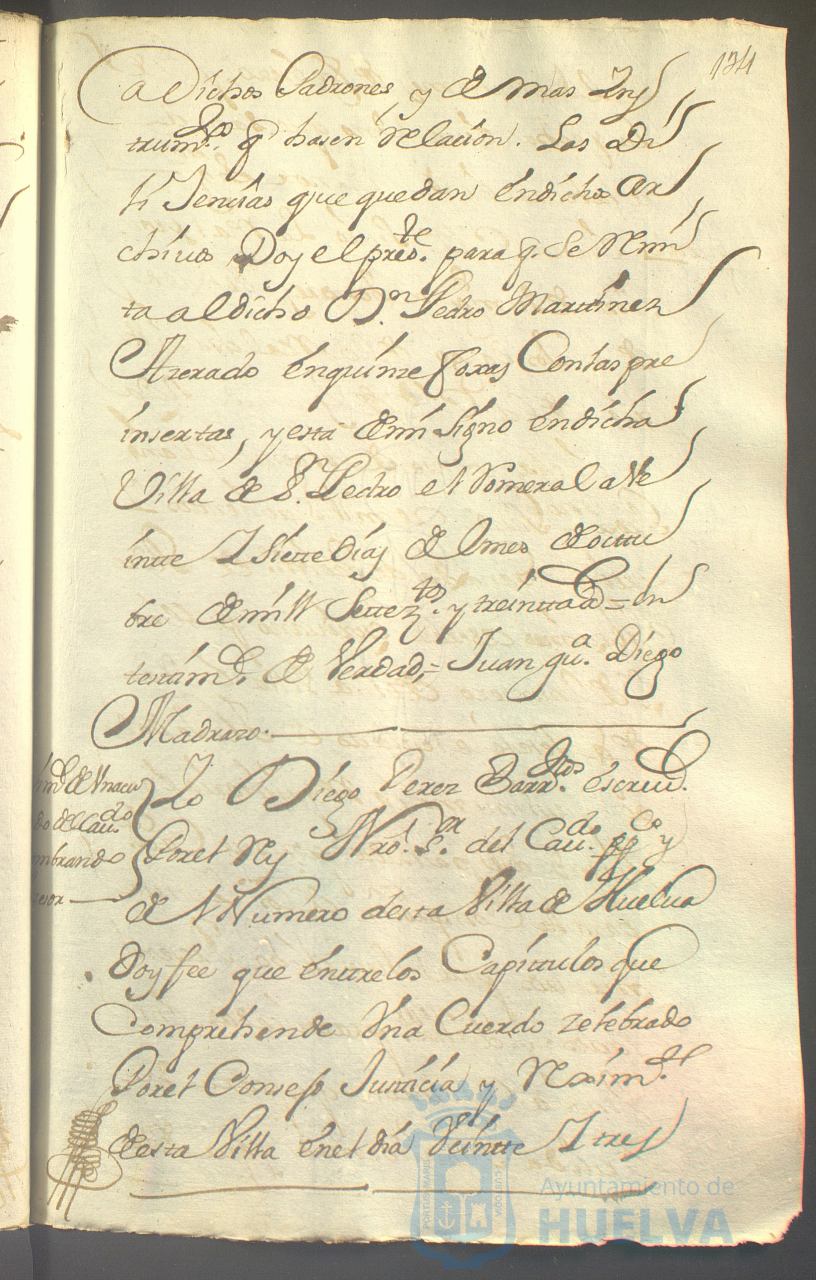 134
a Dichos Padrones, y de mas Yns
trumtos. q hasen relacion. Las Di
li Jencias que quedan en dichos Ar
chivos Doy el preste. para q. se Remi
ta al dicho Dn. Pedro Martinez
en quinse foxas Con las pre
insertas, y esta de mi signo en dicha
Villa de Sn. Pedro el Romeral a Ve
inte Y Siette dias de l mes de octtu
bre de mill Settezos. y treintta = En
testimo. de Verdad, = Juan Diego
Madrazo.
Yo Diego Perez Barrtos. escriuo.
Por el Rey Nro. sor. del Cauido. ppco y
de el Numero desta Villa de Huelua
doy fee que entre los Capittulos que
Comprehende Vn a Cuerdo zelebrado
Por el Consejo Justicia y Reximto.
desta Villa en el dia Veintte Y tres
do del Cauido
mbrando
Ayuntamiento de
HUELVA
PORTUS MARIS
ET TERRAE CUSTODIA